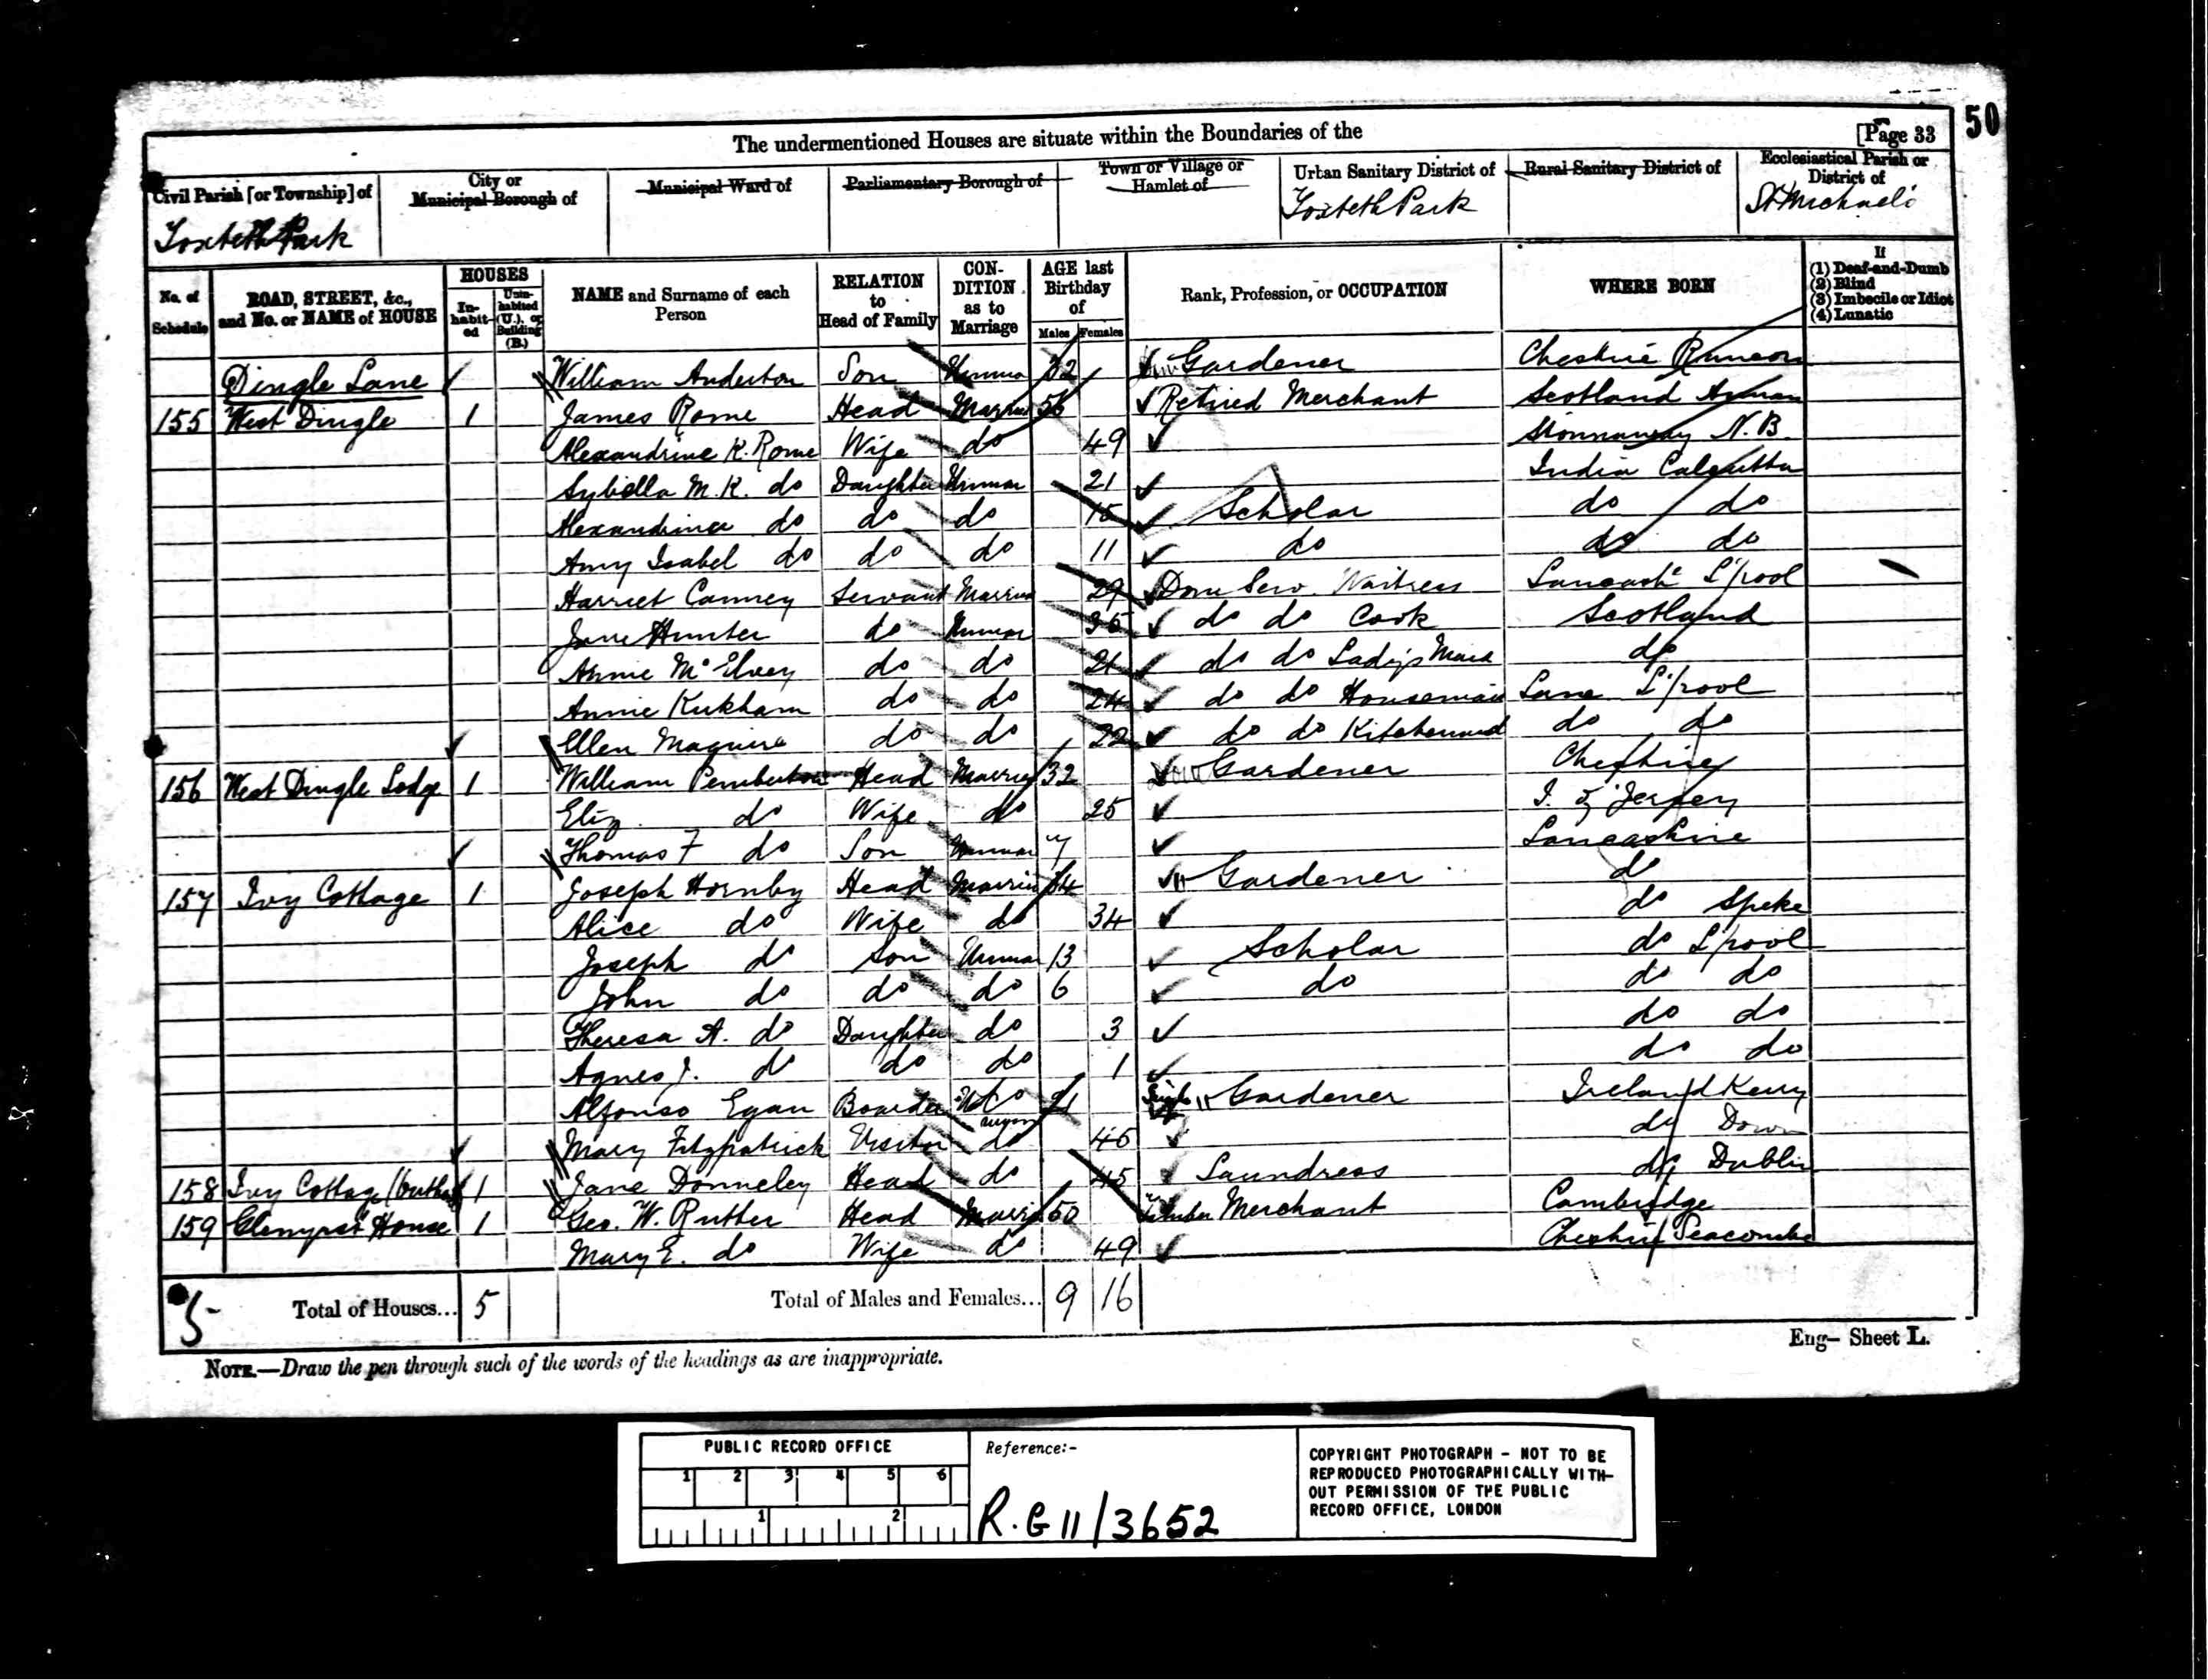 50
The undermentioned Houses are situate within the Boundaries of the [Page 33
Civil Parish [or Township] of Toxteth Park
City or Municipal Borough of
Municipal Ward of
Parliamentary Borough of
Town or Village or Hamlet of
Urban Sanitary District of Toxteth Park
Rural Sanitary District of
Ecclesiastical Parish or District of St Michaels
No. of Schedule
ROAD, STREET, &c., and No. or NAME of HOUSE
HOUSES
Inhabited
Uninhabited (U.), or Building (B.)
NAME and Surname of each Person
RELATION to Head of Family
CONDITION as to Marriage
AGE last Birthday of
Males Females
Rank, Profession, or OCCUPATION
WHERE BORN
If (1) Deaf-and-Dumb (2) Blind (3) Imbecile or Idiot (4) Lunatic
Dingle Lane William Anderton Son Unmar 32 Gardener Cheshire Runcorn
155 West Dingle 1 James Rome Head Married 56 Retired Merchant Scotland Annan
Alexandrine K. Rome Wife do 49 Stornaway N.B.
Sybella M. K. do Daughter Unmar 21 India Calcutta
Alexandrina do do do 15 Scholar do do
Amy Isabel do do do 11 do do do
Harriet Canney Servant Married 29 Dom Serv. Waitress Lancash L'pool
Jane Hunter do Unmar 35 do do Cook Scotland
Annie McElvey do do 21 do do Lady's Maid do
Annie Kirkham do do 24 do do Housemaid Lanc L'pool
Ellen Maguire do do 22 do do Kitchenmaid do do
156 West Dingle Lodge 1 William Pemberton Head Married 32 Gardener Cheshire
Eliz do Wife do 25 I. of Jersey
Thomas F do Son Unmar 7 Lancashire
157 Ivy Cottage 1 Joseph Hornby Head Married 34 Gardener do
Alice do Wife do 34 do Speke
Joseph do Son Unmar 13 Scholar do L'pool
John do do do 6 do do do
Theresa A. do Daughter do 3 do do
Agnes J. do do do 1 do do
Alfonso Egan Boarder do 21 Gardener Ireland Kerry
Mary Fitzpatrick Visitor do 46 do Down
158 Ivy Cottage 1 Jane Donneley Head do 45 Laundress do Dublin
159 Glenyest House 1 Geo. W. Rutter Head Married 50 Timber Merchant Cambridge
Mary E. do Wife do 49 Cheshire Seacombe
5 Total of Houses... 5 Total of Males and Females... 9 16
Eng— Sheet L.
NOTE.—Draw the pen through such of the words of the headings as are inappropriate.
PUBLIC RECORD OFFICE
1 2 3 4 5 6
1 2
Reference:-
R.G 11/3652
COPYRIGHT PHOTOGRAPH - NOT TO BE
REPRODUCED PHOTOGRAPHICALLY WITH-
OUT PERMISSION OF THE PUBLIC
RECORD OFFICE, LONDON